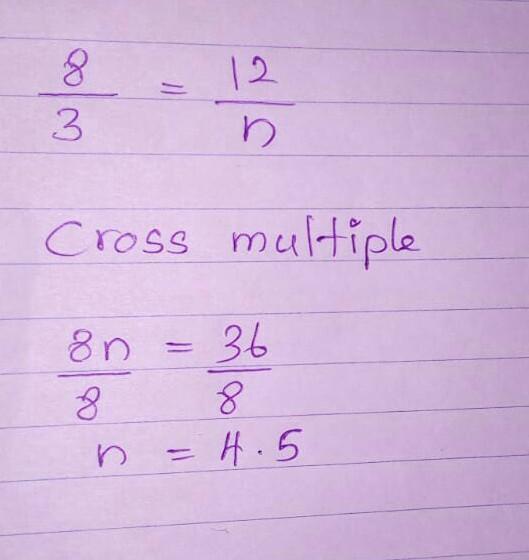 8/3 = 12/n
Cross multiple
8n/8 = 36/8
n = 4.5